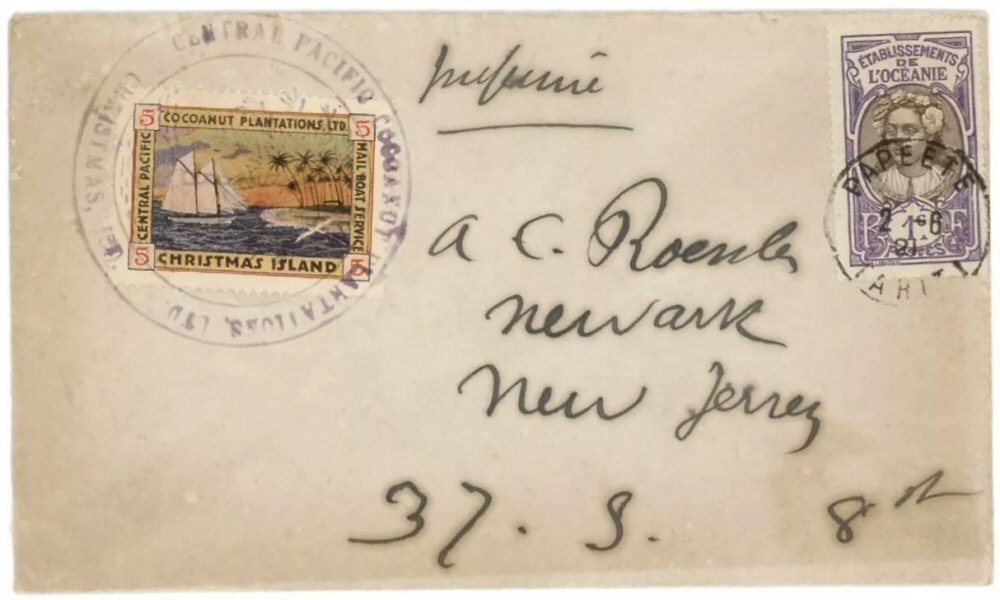 CENTRAL PACIFIC COCOANUT PLANTATIONS, LTD.
CHRISTMAS, Is.
5 COCOANUT PLANTATIONS, LTD. 5
CENTRAL PACIFIC
MAIL BOAT SERVICE
5 CHRISTMAS ISLAND 5
ETABLISSEMENTS
DE
L'OCÉANIE
PAPEETE
2 6
21
TAHITI
A C. Roessler
Newark
New Jersey
37. S. 8 st